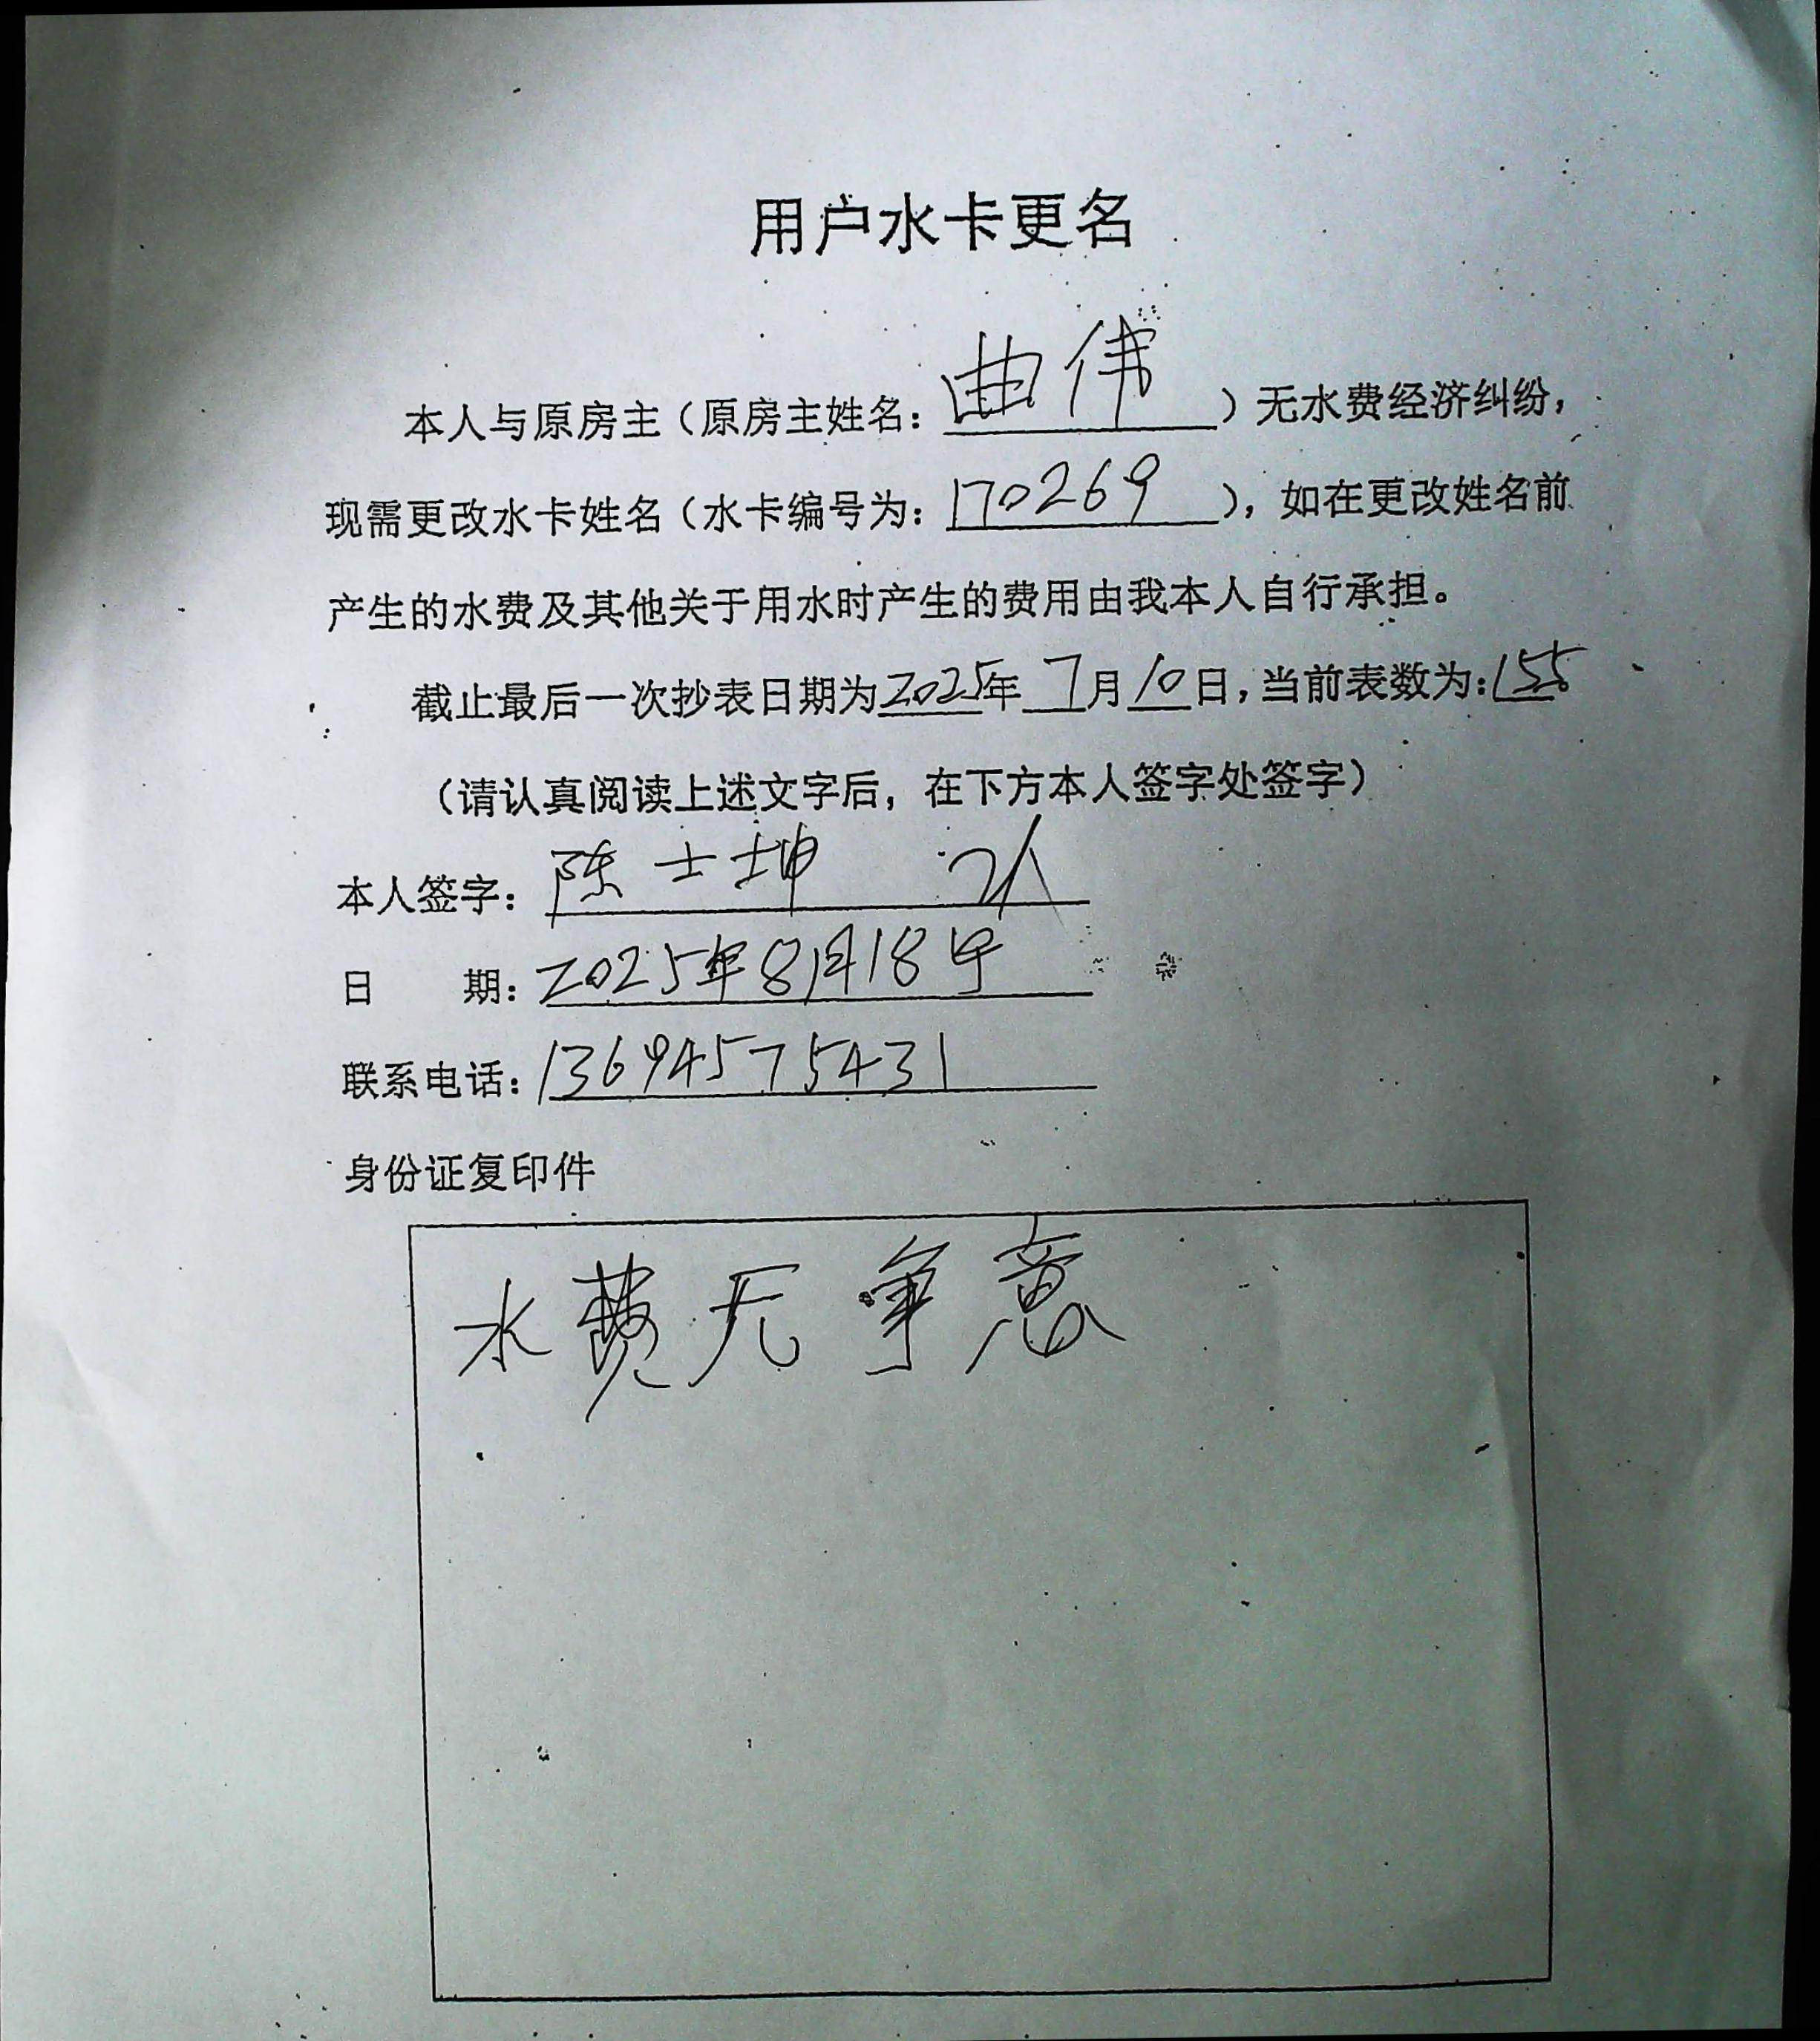 用户水卡更名
本人与原房主（原房主姓名：曲伟）无水费经济纠纷，
现需更改水卡姓名（水卡编号为：170269），如在更改姓名前
产生的水费及其他关于用水时产生的费用由我本人自行承担。
截止最后一次抄表日期为2025年7月10日，当前表数为：155
（请认真阅读上述文字后，在下方本人签字处签字）
本人签字：陈士坤
日 期：2025年8月18号
联系电话：13694575431
身份证复印件
水费无争意